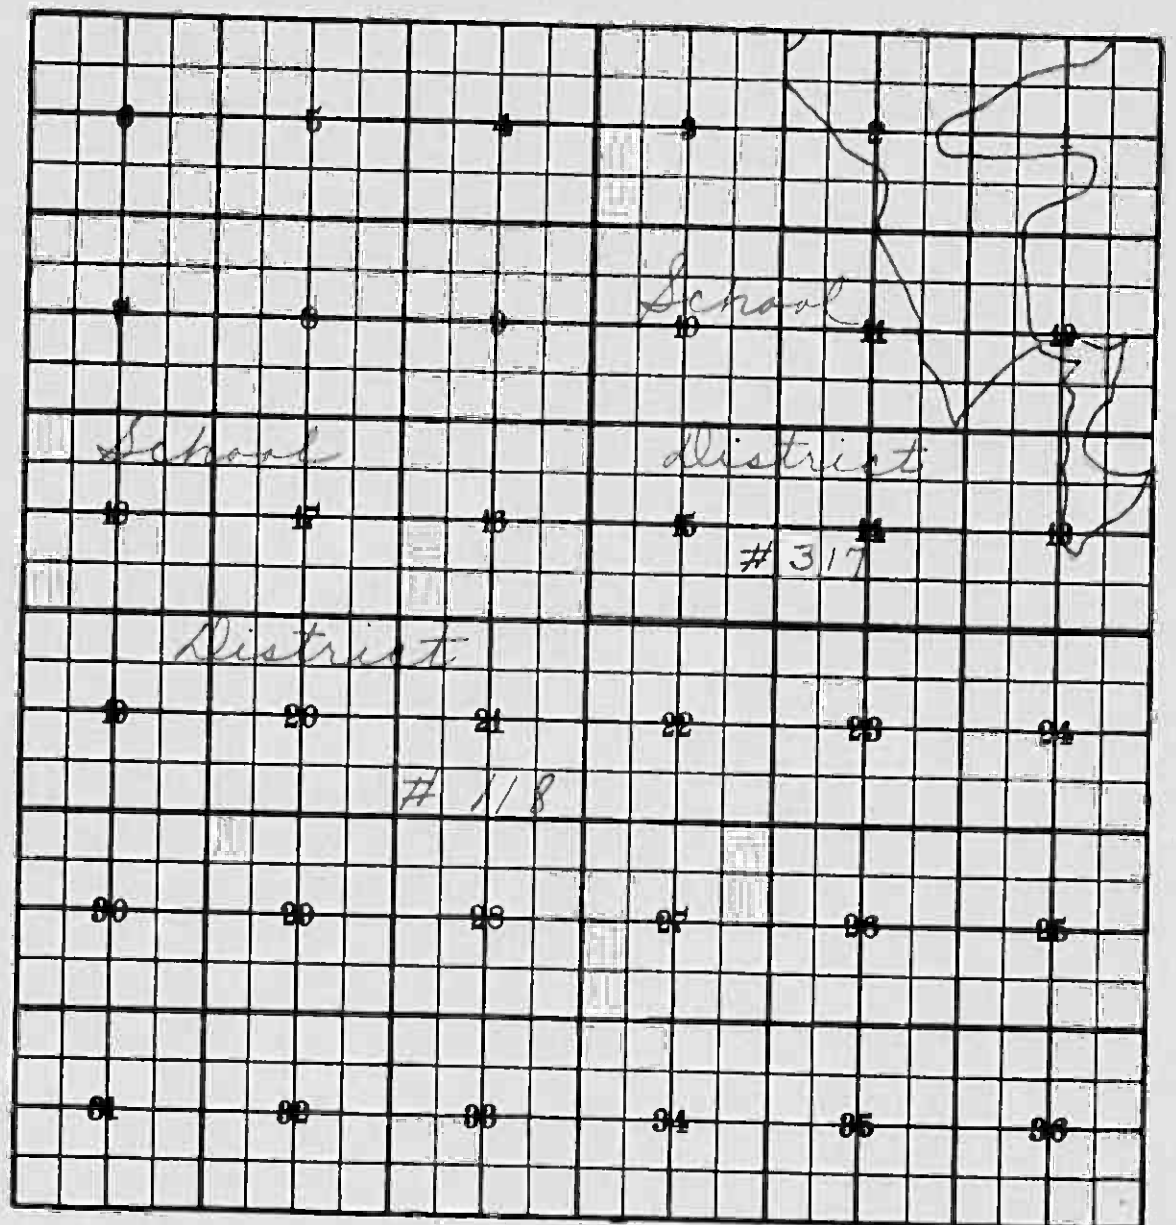 6 5 4 3 2 1
School
7 8 9 10 11 12
School District
18 17 16 15 14 13
# 317
District
19 20 21 22 23 24
# 118
30 29 28 27 26 25
31 32 33 34 35 36